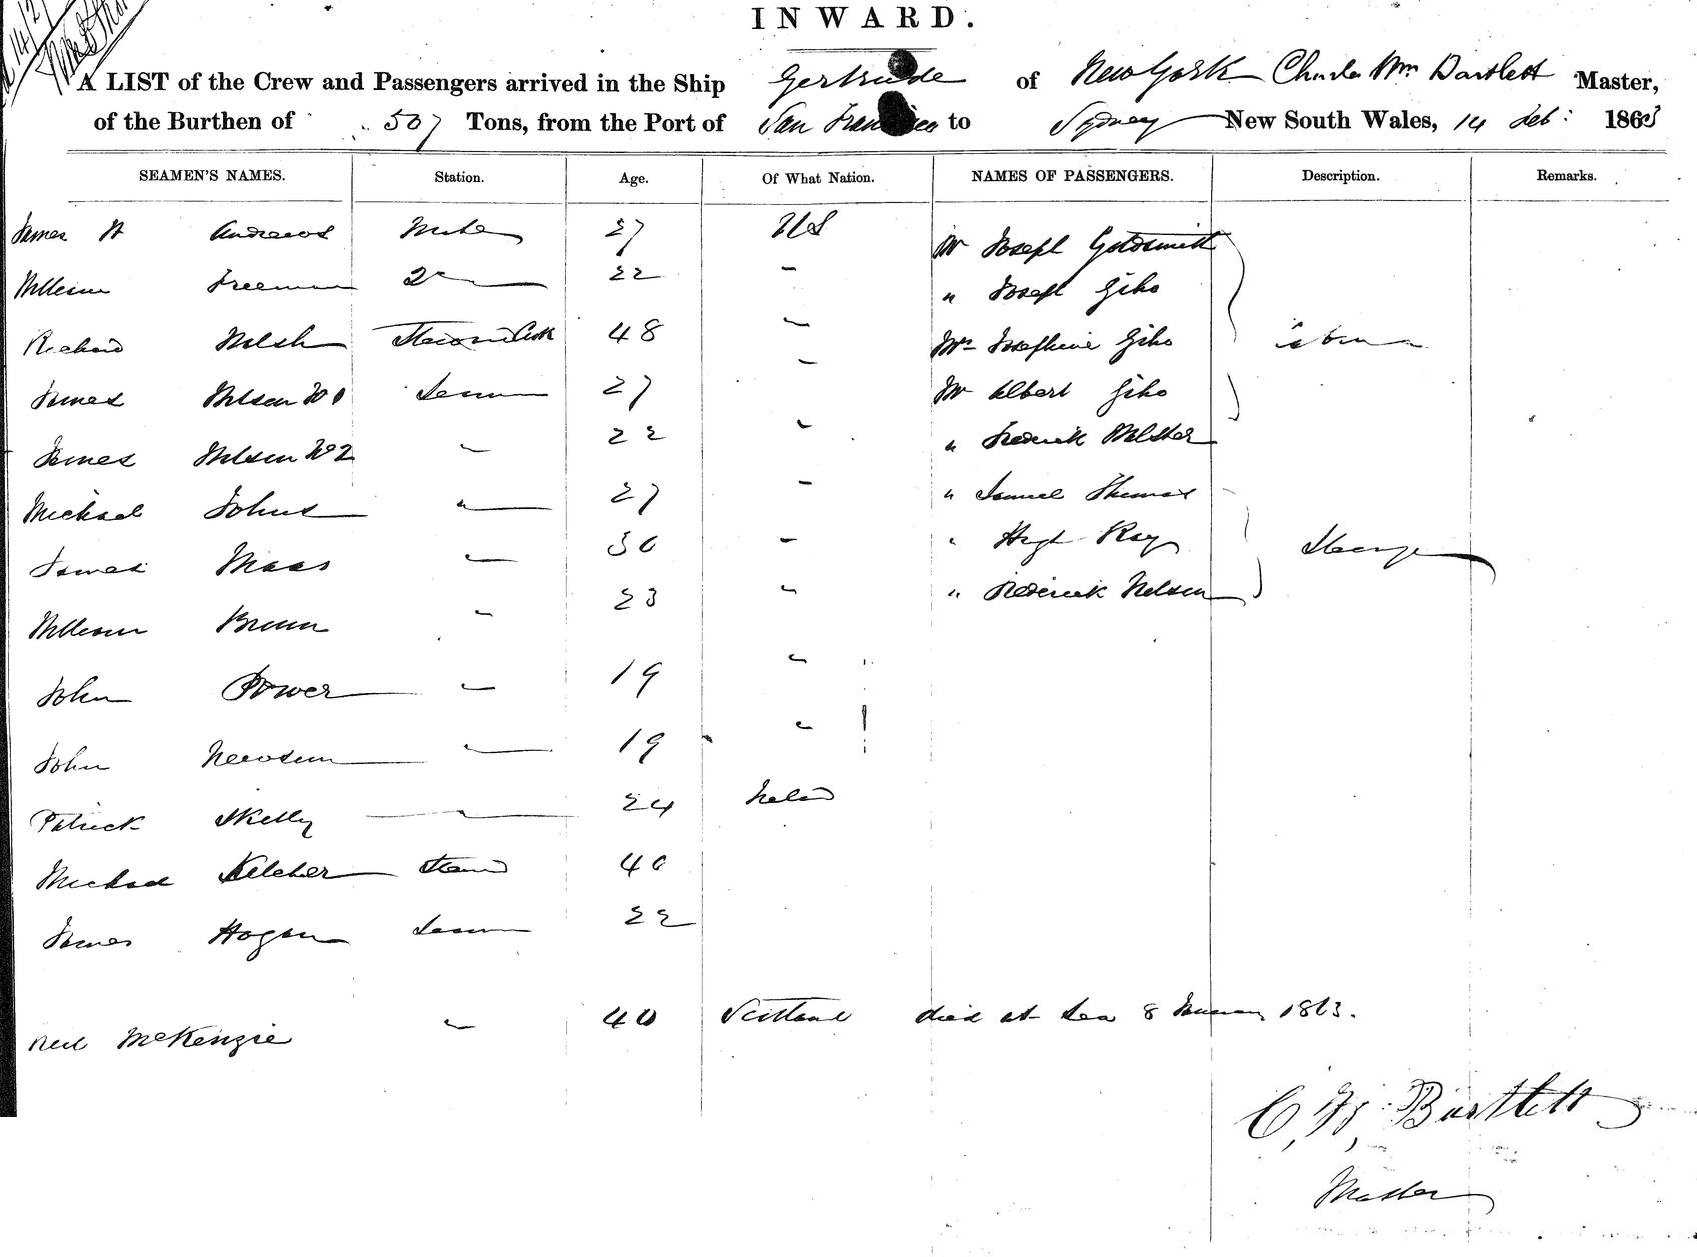 INWARD.
A LIST of the Crew and Passengers arrived in the Ship Gertrude of New York Charles Wm Bartlett Master,
of the Burthen of 507 Tons, from the Port of San Francisco to Sydney New South Wales, 14 Feb: 1863
SEAMEN'S NAMES. Station. Age. Of What Nation. NAMES OF PASSENGERS. Description. Remarks.
James Andrews Mate 27 US Mr Joseph Goldsmith
William Freeman 2 22 - " Joseph Giho
Richard Welsh 48 " Mrs Josephine Giho Cabin
James Nelson No 1 Seaman 27 " Mr Albert Giho
James Nelson No 2 " 22 " " Frederick
Michael Johns " 27 " " Samuel Thomas
James Maas " 30 " " Hugh Ray Steerage
William Brown " 23 " " Frederick Nelson
John Power " 19 "
John Newsum " 19 "
Patrick Skelly " 24 Ireland
Michael Kelcher 40
James Hogan Seaman 22
Neil McKenzie " 40 Scotland died at Sea 8 January 1863.
C. W. Bartlett
Master